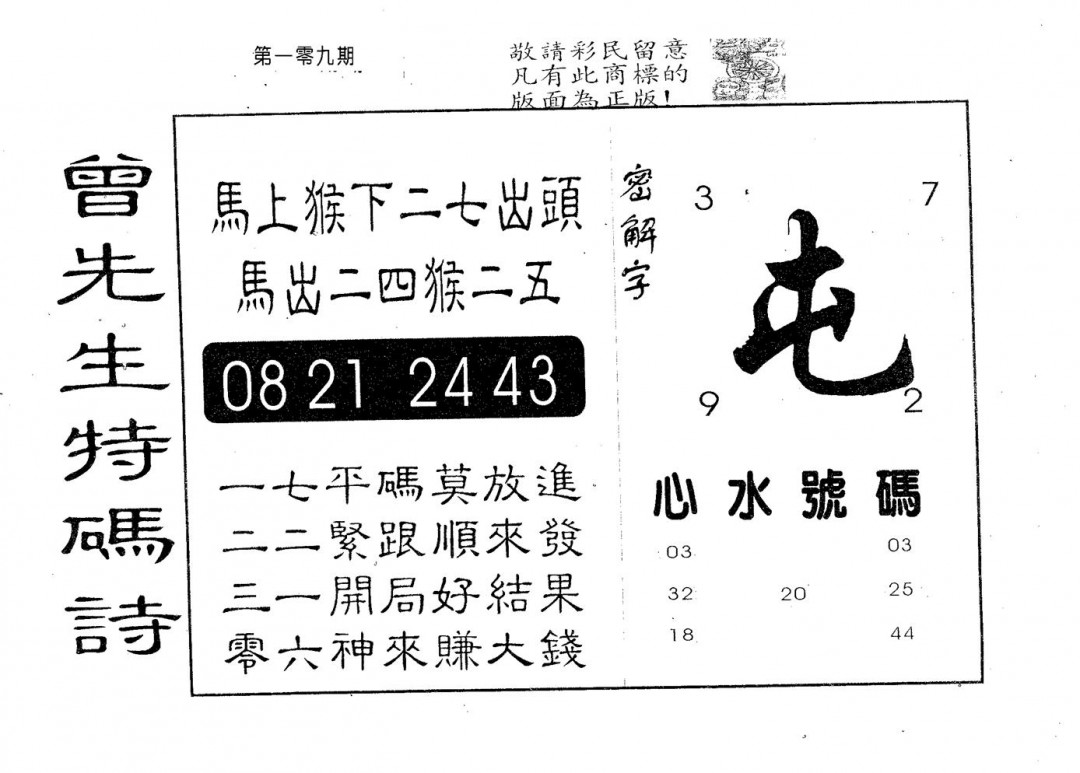 第一零九期
敬請彩民留意
凡有此商標的
版面為正版！
曾先生特碼詩
馬上猴下二七出頭
馬出二四猴二五
08 21 24 43
一七平碼莫放進
二二緊跟順來發
三一開局好結果
零六神來賺大錢
密解字
3 7
屯
9 2
心水號碼
03 03
32 20 25
18 44